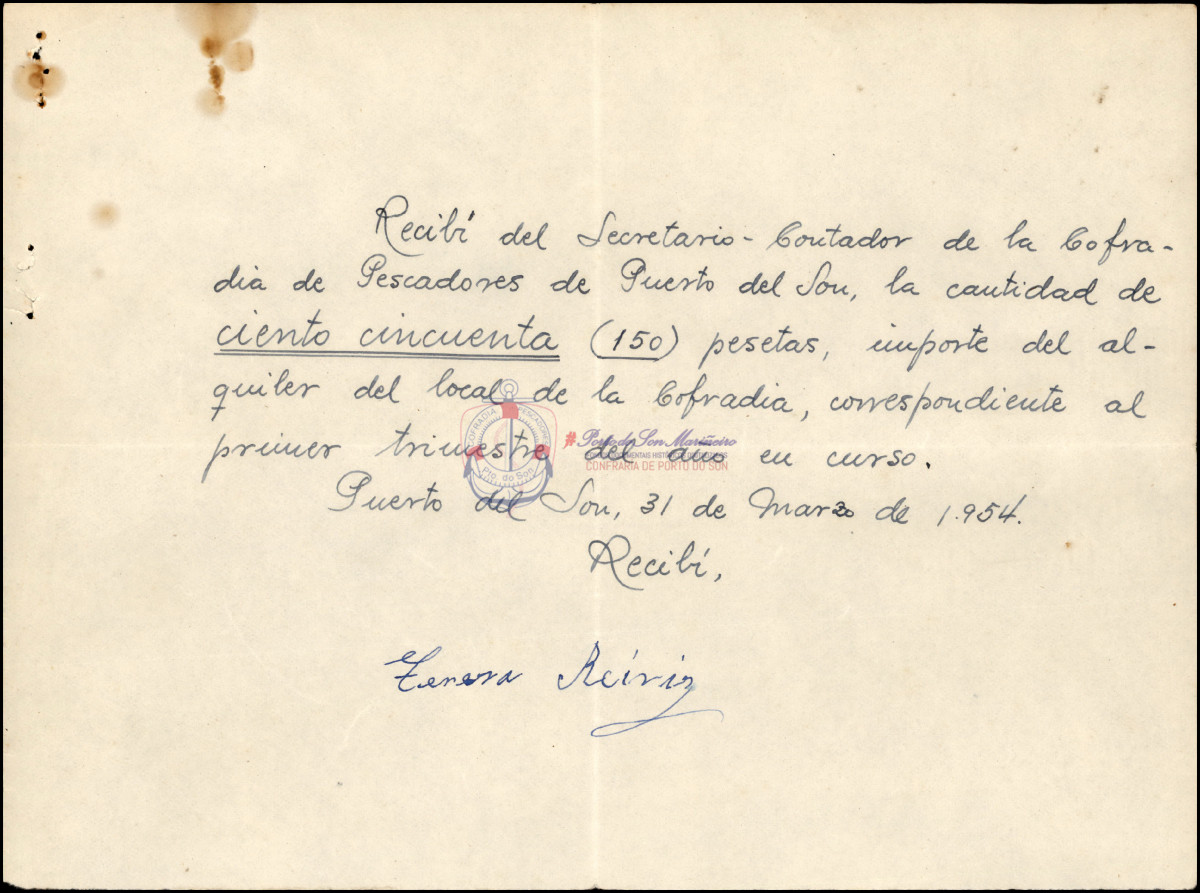 Recibí del Secretario-Contador de la Cofra-
dia de Pescadores de Puerto del Son, la cantidad de
ciento cincuenta (150) pesetas, importe del al-
quiler del local de la Cofradia, correspondiente al
primer trimestre del año en curso.
Puerto del Son, 31 de Marzo de 1.954.
Recibí,
Teresa Reiriz
COFRADIA PESCADORES
Pto. do Son
#Porto do Son Mariñeiro
CONFRARIA DE PORTO DO SON